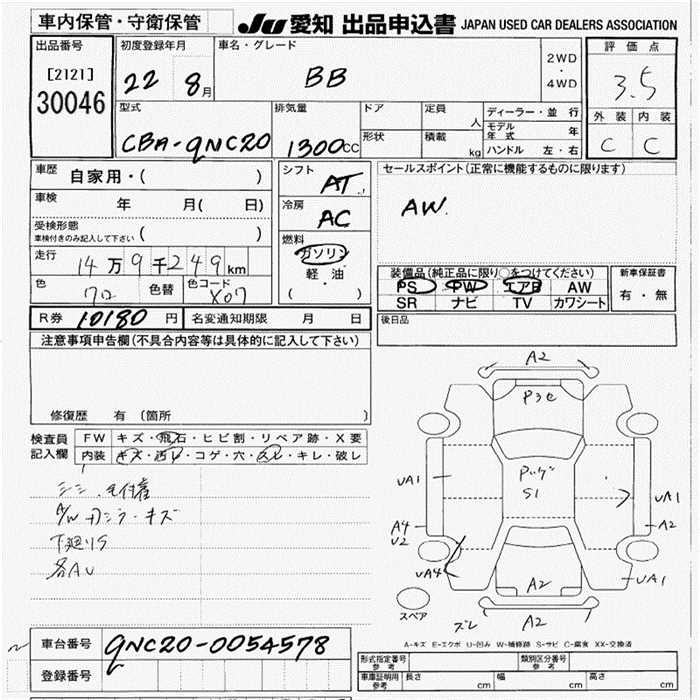 車内保管・守衛保管
JU 愛知 出品申込書 JAPAN USED CAR DEALERS ASSOCIATION
出品番号
[2121]
30046
初度登録年月
22 8月
車名・グレード
BB
2WD
・
4WD
評価点
3.5
外装 内装
C C
型式
CBA-QNC20
排気量
1300cc
ドア
形状
定員
人
積載
kg
ディーラー・並行
モデル年式 年
ハンドル 左・右
車歴
自家用・( )
車検 年 月( 日)
受検形態
車検付きのみ記入して下さい ( )
走行
14万9千249km
色
クロ
色替
色コード
X07
シフト
AT
冷房
AC
燃料
ガソリン
軽・油
( )
セールスポイント(正常に機能するものに限ります)
AW.
装備品(純正品に限り○をつけてください)
PS PW エアB AW
SR ナビ TV カワシート
新車保証書
有・無
R券 10180円 名変通知期限 月 日
後日品
注意事項申告欄(不具合内容等は具体的に記入して下さい)
修復歴 有 〔箇所 〕
検査員
記入欄
FW キズ・飛石・ヒビ割・リペア跡・X要
内装 キズ・汚レ・コゲ・穴・スレ・キレ・破レ
A/W カジラ・キズ
下廻りS
各AU
A2
P3c
S1
UA1
UA1
A4
U2
A2
UA4
UA1
A2
A2
スペア
ズレ
A-キズ E-エクボ U-凹み W-補修跡 S-サビ C-腐食 XX-交換済
車台番号 QNC20-0054578
登録番号
形式指定番号
参考
類別区分番号
参考
車庫証明用
参考
長さ cm 幅 cm 高さ cm